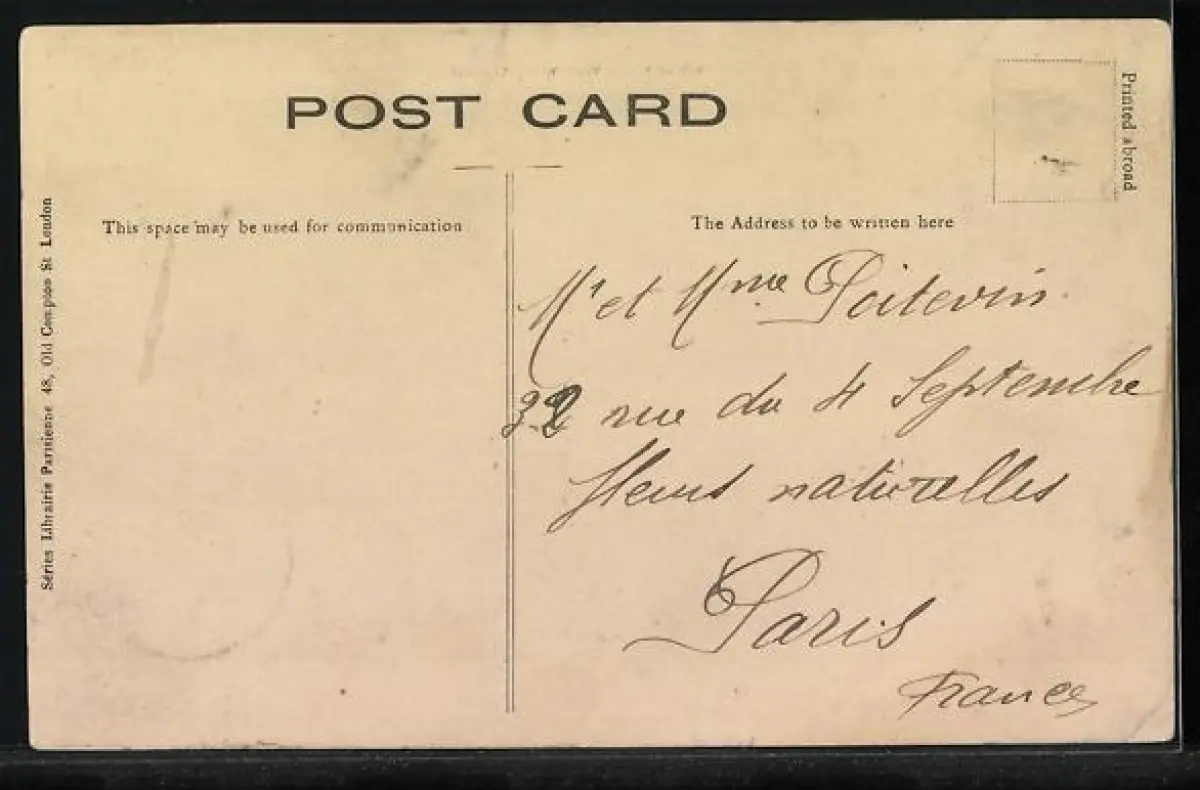 POST CARD
Printed abroad
This space may be used for communication
The Address to be written here
Séries Librairie Parisienne 48, Old Compton St London
Mr et Mme Poitevin
32 rue du 4 Septembre
fleurs naturelles
Paris
France